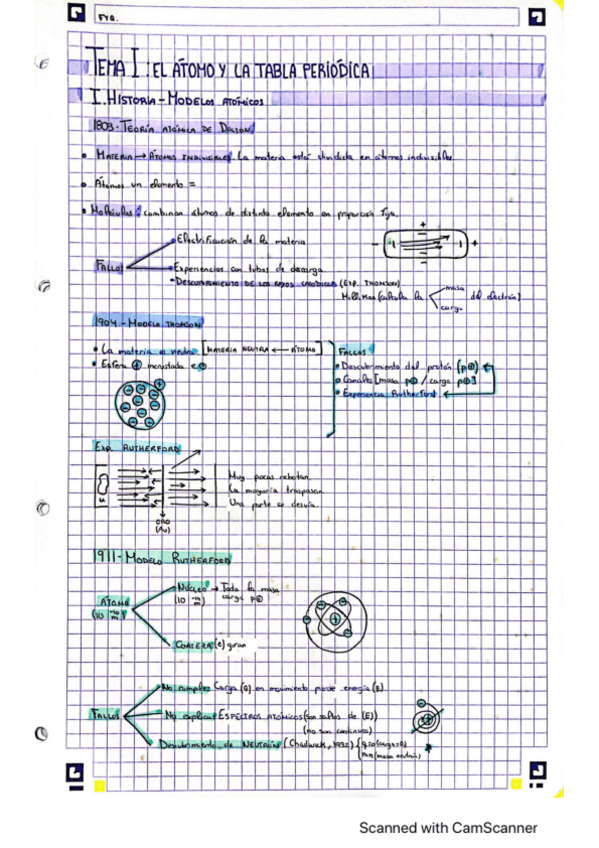 FYQ.
TEMA I: EL ÁTOMO Y LA TABLA PERIÓDICA
I. HISTORIA - MODELOS ATÓMICOS
1803 - TEORÍA ATÓMICA DE DALTON
MATERIA → ÁTOMOS INDIVISIBLES. La materia está dividida en átomos indivisibles
Átomos un elemento =
Moléculas: combinan átomos de distinto elemento en proporción fija.
Electrificación de la materia
FALLOS
Experiencias con tubos de descarga
DESCUBRIMIENTO DE LOS RAYOS CATÓDICOS (EXP. THOMSON)
Millikan (calcula la masa carga del electrón)
1904 - MODELO THOMSON
La materia es neutra [MATERIA NEUTRA ← ÁTOMO]
Esfera + incrustada e⊖
FALLOS
Descubrimiento del protón (p⊕)
Canales [masa p⊕ / carga p⊕]
Experiencia Rutherford
EXP. RUTHERFORD
Muy pocas rebotan
La mayoría traspasan
Una parte se desvía
oro
(Au)
1911 - MODELO RUTHERFORD
NÚCLEO → Toda la masa
carga p⊕
ÁTOMO
CORTEZA (e) giran
No cumple: Carga (Q) en movimiento pierde energía (E)
FALLOS
No explica: ESPECTROS ATÓMICOS (son saltos de (E))
(no son continuos)
Descubrimiento de NEUTRÓN (Chadwick, 1932)
Scanned with CamScanner